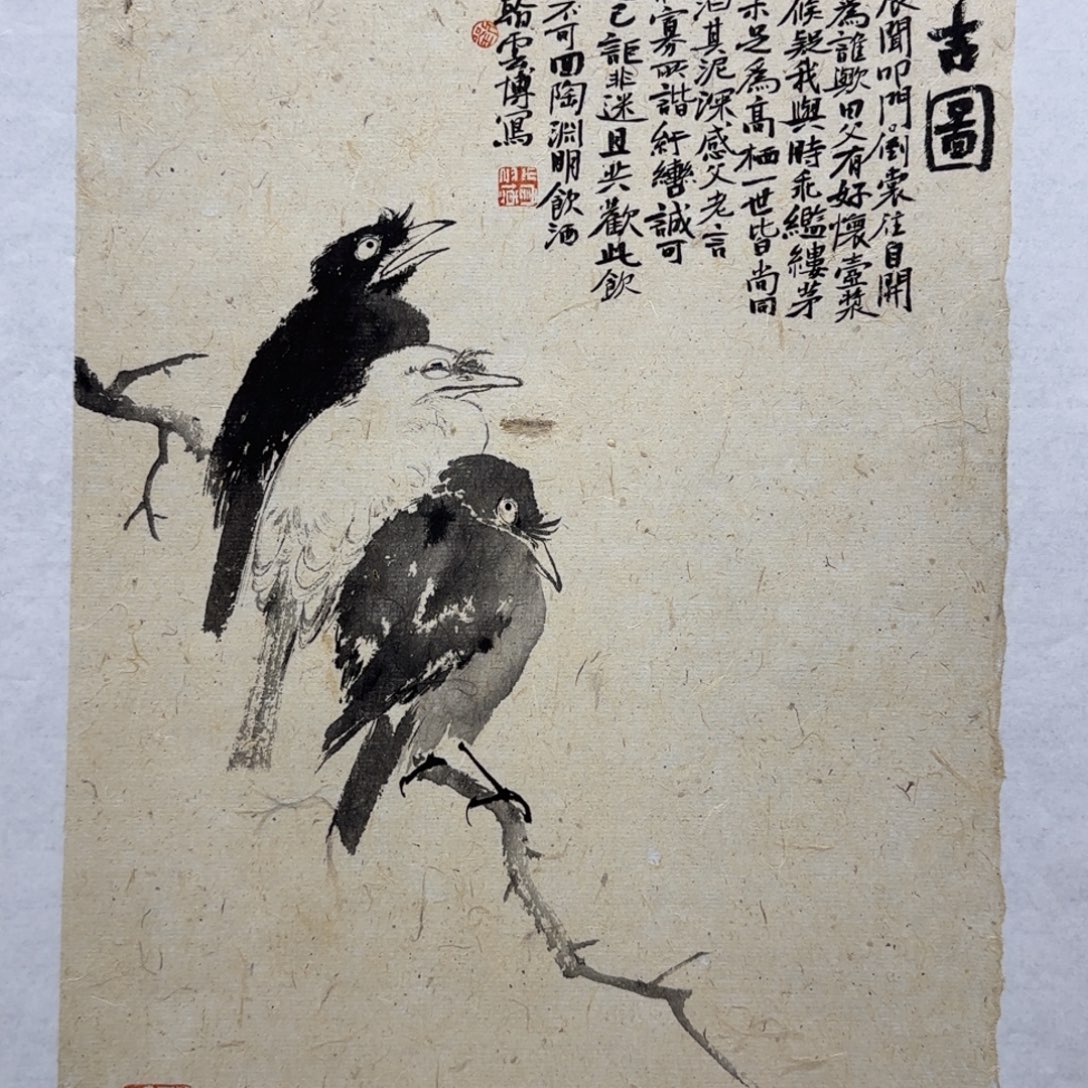 古圖
晨聞叩門倒裳往自開
為誰歟田父有好懷壺漿
候疑我與時乖繿縷茅
未足為高栖一世皆尚同
汩其泥深感父老言
寡所諧紆轡誠可
己詎非迷且共歡此飲
不可回陶淵明飲酒
雲博寫